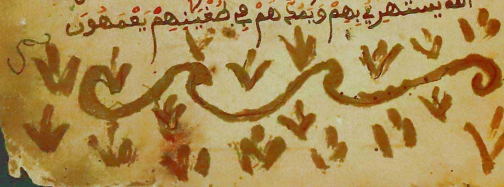 الله يستهزئ بهم ويمدهم في طغينهم يعمهون